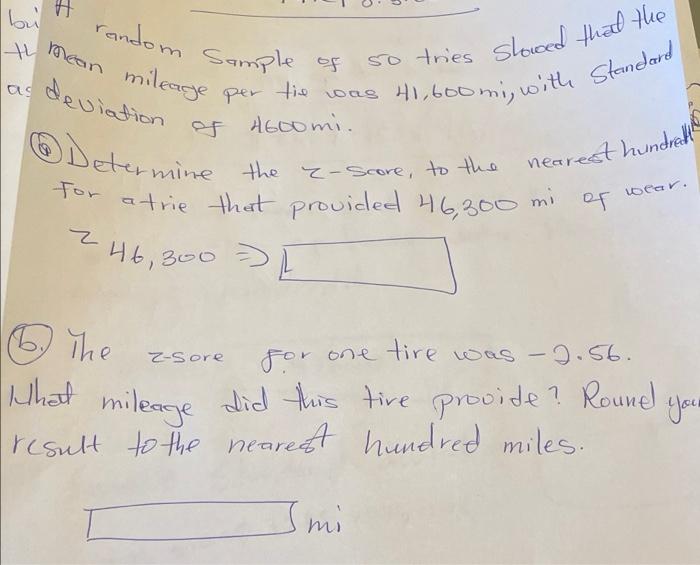 A random Sample of 50 tries Slowed that the
mean mileage per tie was 41,600 mi, with Standard
deviation of 4600 mi.
(a) Determine the z-score, to the nearest hundredths
For a trie that provided 46,300 mi of wear.
z 46,300 ⇒
(b.) The z-sore for one tire was -2.56.
What mileage did this tire provide? Round you
result to the nearest hundred miles.
mi